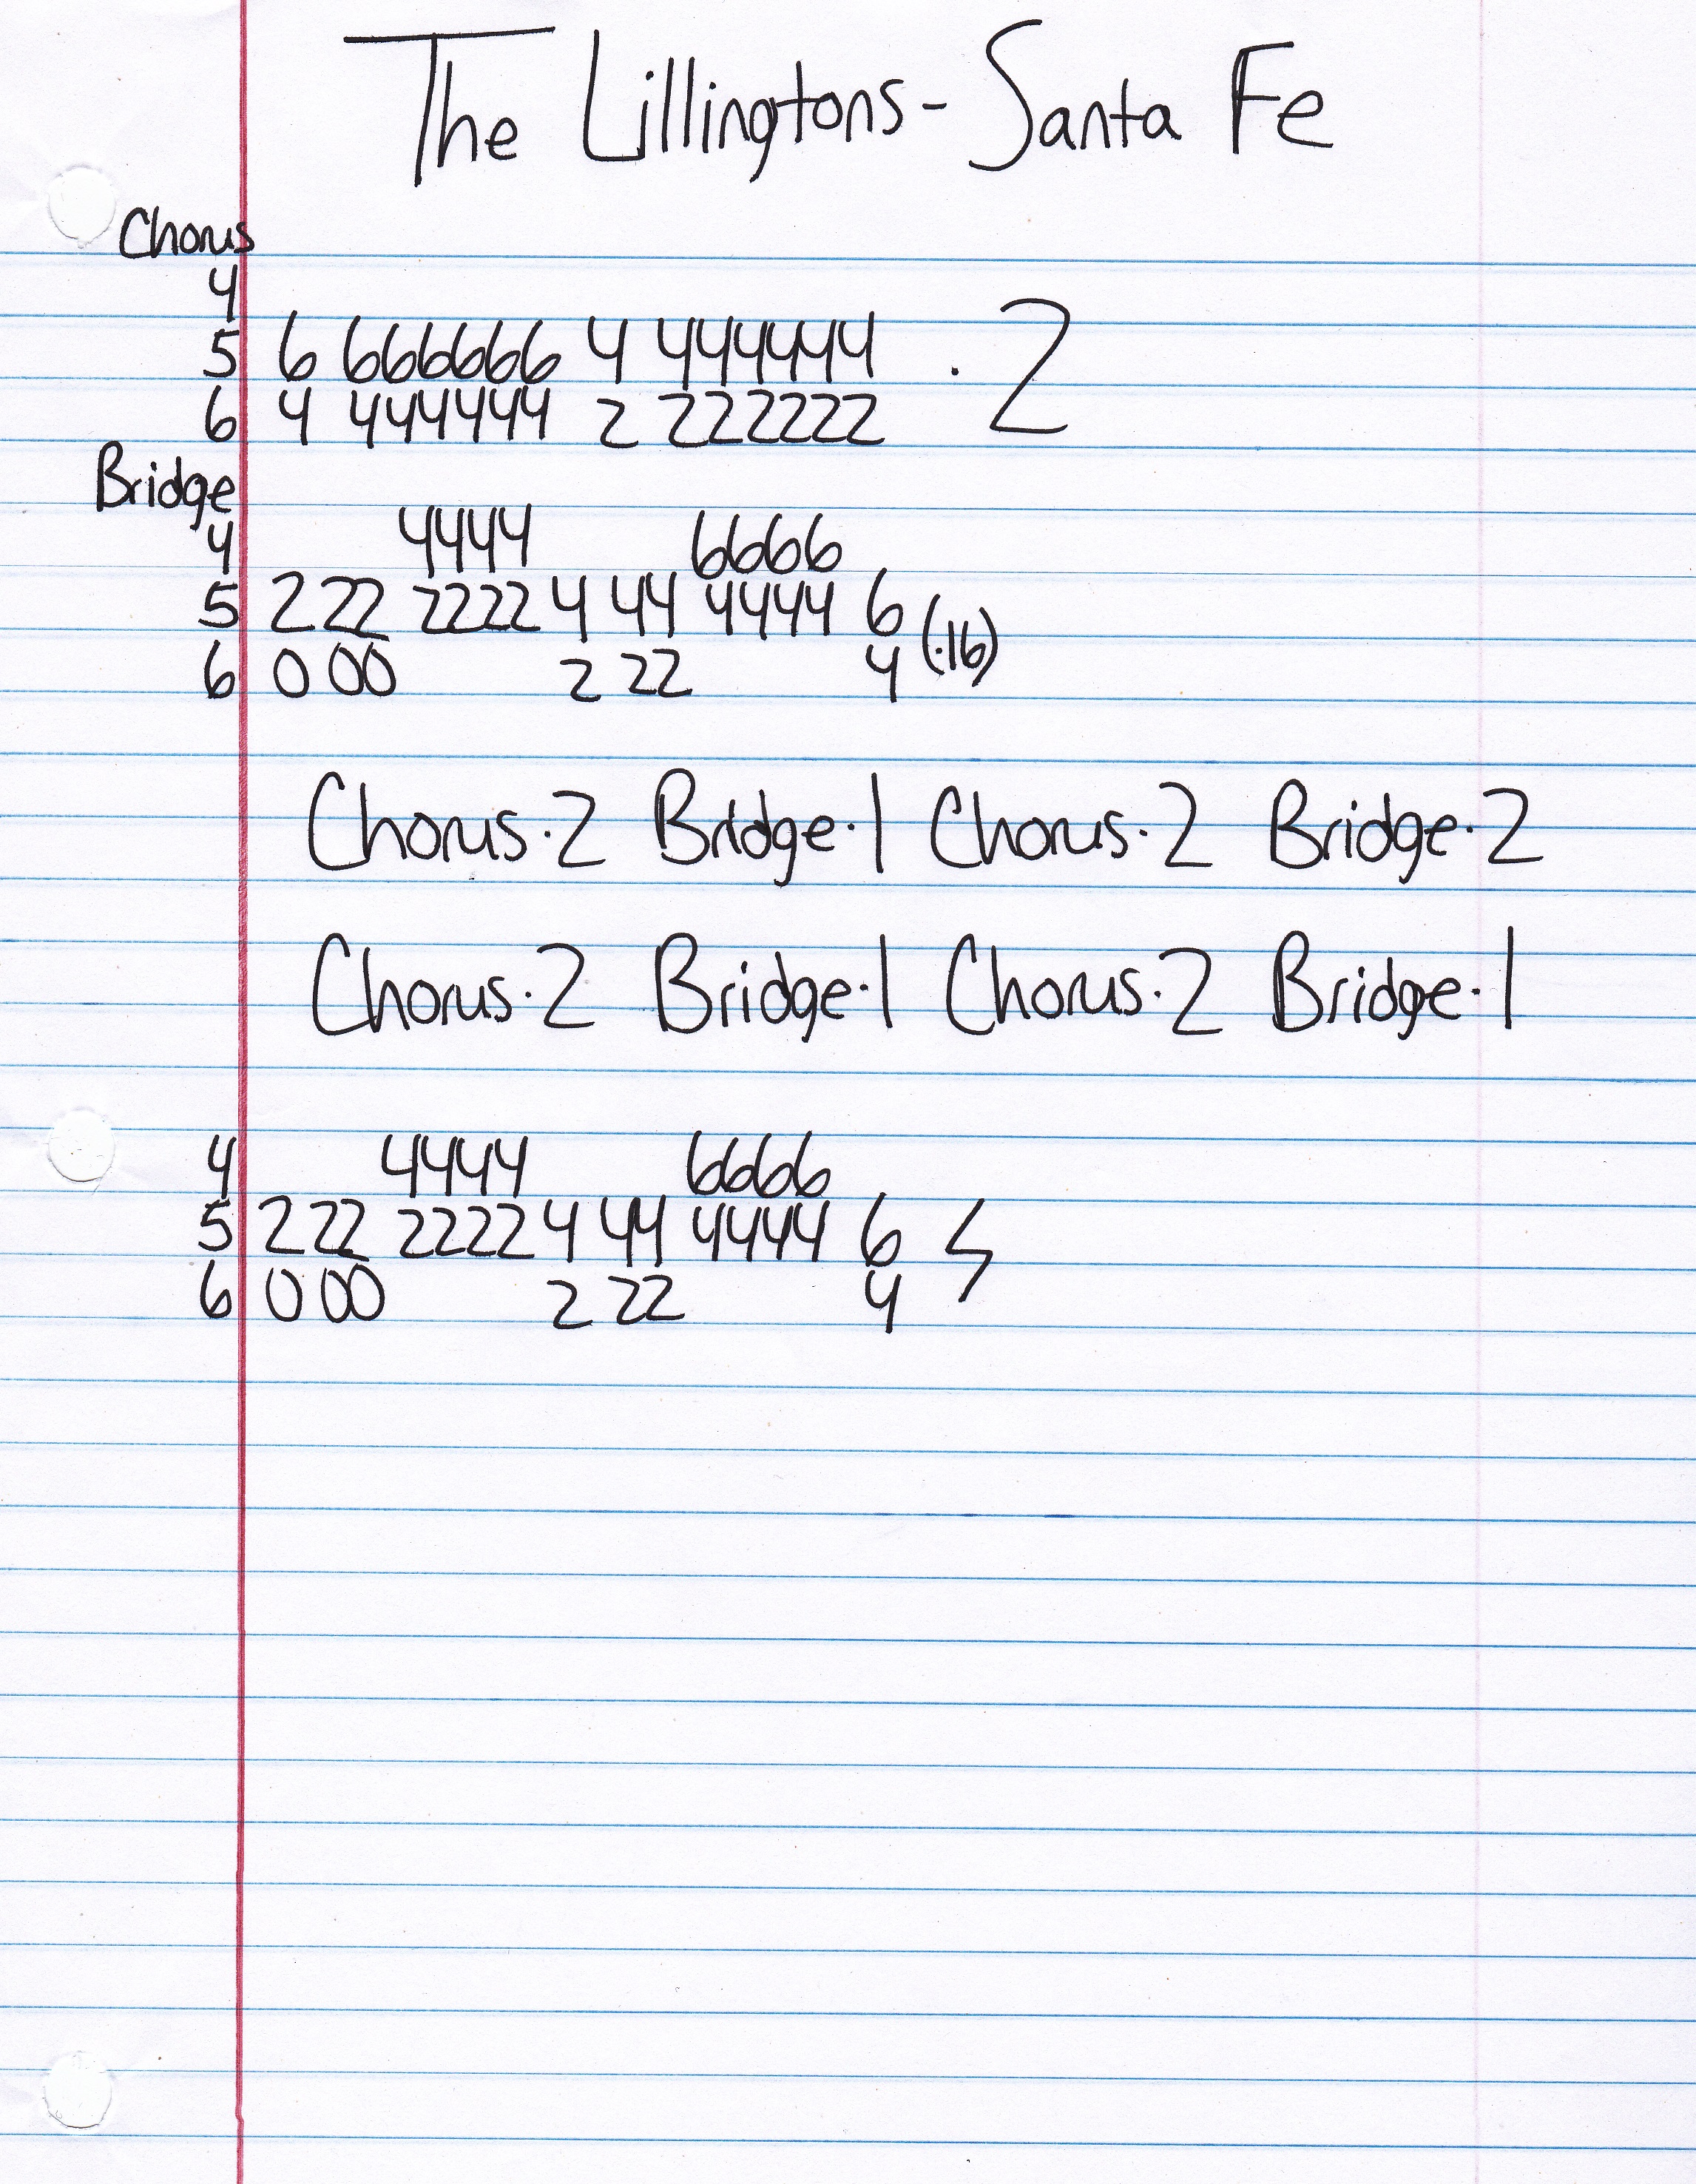 The Lillingtons - Santa Fe
Chorus
4
5 6 666666 4 444444 · 2
6 4 444444 2 222222
Bridge
4 4444 6666
5 2 22 2222 4 44 4444 6 (·16)
6 0 00 2 22 4
Chorus·2 Bridge·1 Chorus·2 Bridge·2
Chorus·2 Bridge·1 Chorus·2 Bridge·1
4 4444 6666
5 2 22 2222 4 44 4444 6
6 0 00 2 22 4